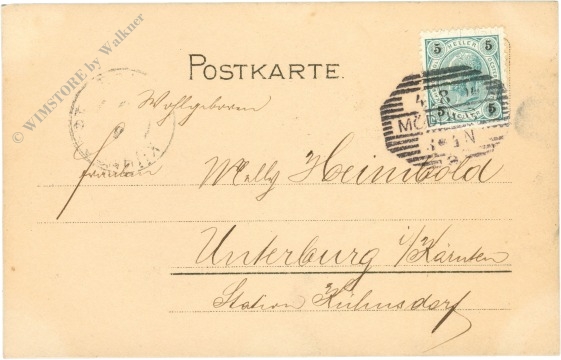 © WIMSTORE by Walkner
POSTKARTE.
5 HELLER 5
5 5
Wohlgeboren
Fräulein Melly Heimbold
Unterburg i/Kärnten
Station Kühnsdorf